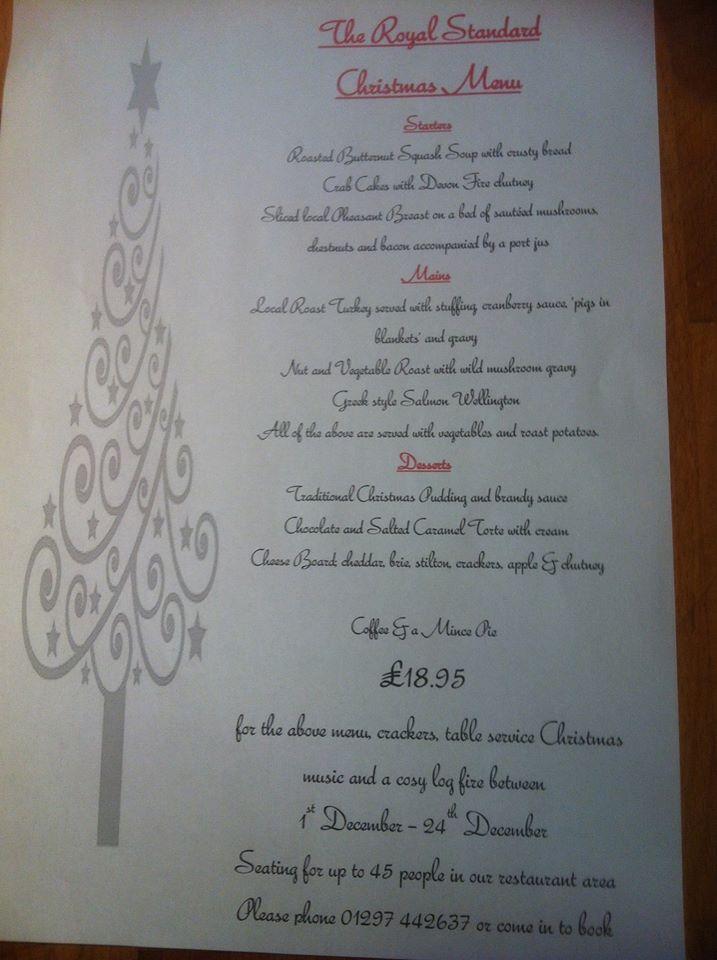 The Royal Standard
Christmas Menu
Starters
Roasted Butternut Squash Soup with crusty bread
Crab Cakes with Devon Fire chutney
Sliced local Pheasant Breast on a bed of sautéed mushrooms,
chestnuts and bacon accompanied by a port jus
Mains
Local Roast Turkey served with stuffing, cranberry sauce, 'pigs in
blankets' and gravy
Nut and Vegetable Roast with wild mushroom gravy
Greek style Salmon Wellington
All of the above are served with vegetables and roast potatoes.
Desserts
Traditional Christmas Pudding and brandy sauce
Chocolate and Salted Caramel Torte with cream
Cheese Board; cheddar, brie, stilton, crackers, apple & chutney
Coffee & a Mince Pie
£18.95
for the above menu, crackers, table service Christmas
music and a cosy log fire between
1st December – 24th December
Seating for up to 45 people in our restaurant area
Please phone 01297 442637 or come in to book